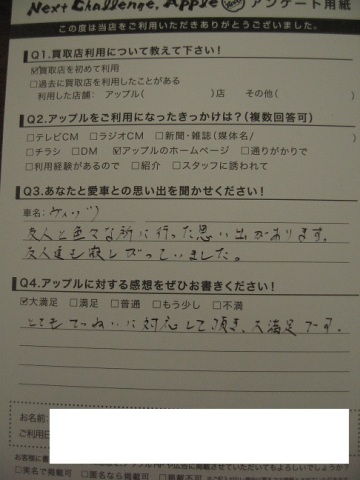 Next Challenge, Apple アンケート用紙
この度は当店をご利用いただきありがとうございました。
Q1.買取店利用について教えて下さい!
☑買取店を初めて利用
□過去に買取店を利用したことがある
利用した店舗: アップル( )店 その他(
Q2.アップルをご利用になったきっかけは?(複数回答可)
□テレビCM □ラジオCM □新聞・雑誌(媒体名/ )
□チラシ □DM ☑アップルのホームページ □通りがかりで
□利用経験があるので □紹介 □スタッフに誘われて
Q3.あなたと愛車との思い出を聞かせください!
車名: ヴィッツ
友人と色々な所に行った思い出があります。
友人達も寂しがっていました。
Q4.アップルに対する感想をぜひお書きください!
☑大満足 □満足 □普通 □もう少し □不満
とてもていねいに対応して頂き、大満足です。
お名前:
ご利用日
お客様に書 アップルHPや広告に掲載させていただいてもよろしいでしょうか?
□実名で掲載可 □匿名なら掲載可 □掲載不可